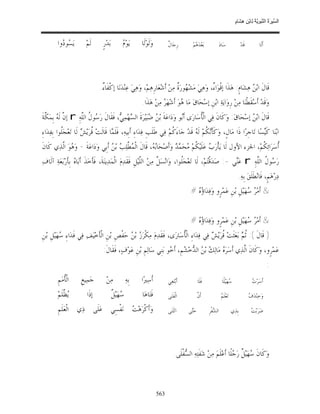 السِّيرَةُ النَّبَوِيَّةُ لِابْنِ هِشَامٍ
أَلَا قَدْ سَادَ بَعْدَهُمُ رِجَالٌ وَلَوْلَا يَوْمُ بَدْرٍ لَمْ يَسُودُوا
قَالَ ابْنُ هِشَامٍ: هَذَا إقْوَاءٌ، وَهِيَ مَشْهُورَةٌ مِنْ أَشْعَارِهِمْ، وَهِيَ عِنْدَنَا إكْفَاءٌ
وَقَدْ أَسْقَطْنَا مِنْ رِوَايَةِ ابْنِ إسْحَاقَ مَا هُوَ أَشْهَرُ مِنْ هَذَا.
قَالَ ابْنُ إسْحَاقَ: وَكَانَ فِي الْأُسَارَى أَبُو وَدَاعَةَ بْنُ ضُبَيْرَةَ السَّهْمِيُّ، فَقَالَ رَسُولُ اللَّهِ r إنَّ لَهُ بِمَكَّةَ
ابْنًا كَيِّسًا تَاجِرًا ذَا مَالٍ، وَكَأَنَّكُمْ بِهِ قَدْ جَاءَكُمْ فِي طَلَبِ فِدَاءِ أَبِيهِ، فَلَمَّا قَالَتْ قُرَيْشٌ لَا تَعْجَلُوا بِفِدَاءِ
أُسَرَائِكُمْ، الجزء الأول لَا يَأْرَبُ عَلَيْكُمْ مُحَمَّدٌ وَأَصْحَابُهُ، قَالَ الْمُطَّلِبُ بْنُ أَبِي وَدَاعَةَ - وَهُوَ الَّذِي كَانَ
رَسُولُ اللَّهِ r عَنَى -: صَدَقْتُمْ، لَا تَعْجَلُوا، وَانْسَلَّ مِنْ اللَّيْلِ فَقَدِمَ الْمَدِينَةَ، فَأَخَذَ أَبَاهُ بِأَرْبَعَةِ آلَافِ
دِرْهَمٍ، فَانْطَلَقَ بِهِ.
# أَمْرُ سُهَيْلِ بْنِ عَمْرٍو وَفِدَاؤُهُ #
# أَمْرُ سُهَيْلِ بْنِ عَمْرٍو وَفِدَاؤُهُ #
( قَالَ ): ثُمَّ بَعَثَتْ قُرَيْشٌ فِي فِدَاءِ الْأُسَارَى، فَقَدِمَ مِكْرَزُ بْنُ حَفْصِ بْنِ الْأَخْيَفِ فِي فِدَاءِ سُهَيْلِ بْنِ
عَمْرٍو، وَكَانَ الَّذِي أَسَرَهُ مَالِكُ بْنُ الدُّخْشُمِ، أَخُو بَنِي سَالِمِ بْنِ عَوْفٍ، فَقَالَ:
أَسَرْتُ سُهَيْلًا فَلَا أَبْتَغِي أَسِيرًا بِهِ مِنْ جَمِيعِ الْأُمَمِ
وَخِنْدَفُ تَعْلَمُ أَنَّ الْفَتَى فَتَاهَا سُهَيْلٌ إذَا يُظَّلَمْ
ضَرَبْتُ بِذِي الشَّفْرِ حَتَّى انْثَنَى وَأَكْرَهْتُ نَفْسِي عَلَى ذِي الْعَلَمِ
وَكَانَ سُهَيْلٌ رَجُلًا أَعْلَمَ مِنْ شَفَتِهِ السُّفْلَى
563